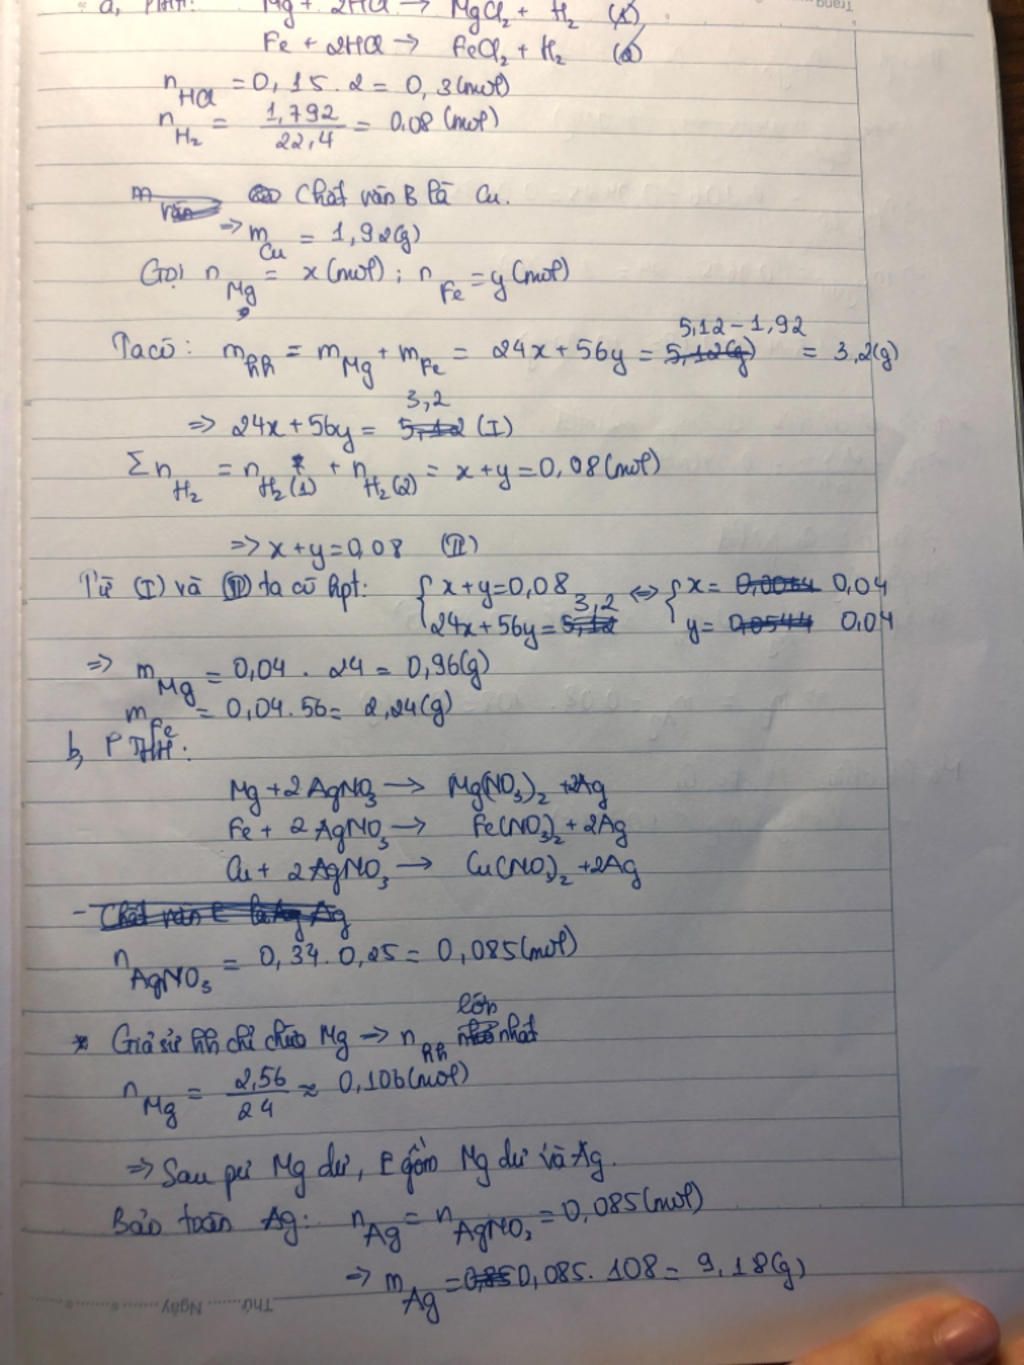 a, PTHH: Mg + 2HCl → MgCl₂ + H₂ (1)
Fe + 2HCl → FeCl₂ + H₂ (2)
n HCl = 0,15 . 2 = 0,3 (mol)
n H₂ = 1,792 / 22,4 = 0.08 (mol)
m rắn Chất rắn B là Cu.
⇒ m Cu = 1,92 (g)
Gọi n Mg = x (mol) ; n Fe = y (mol)
Ta có : m hh = m Mg + m Fe = 24x + 56y = 5,12 (g) 5,12 - 1,92 = 3,2 (g)
⇒ 24x + 56y = 5,12 3,2 (I)
Σ n H₂ = n H₂ (1) + n H₂ (2) = x + y = 0,08 (mol)
⇒ x + y = 0,08 (II)
Từ (I) và (II) ta có hpt: { x + y = 0,08 24x + 56y = 5,12 3,2 ⇔ { x = 0,0064 0,04 y = 0,0544 0,04
⇒ m Mg = 0,04 . 24 = 0,96 (g)
m Fe = 0,04 . 56 = 2,24 (g)
b, PTHH:
Mg + 2AgNO₃ → Mg(NO₃)₂ + 2Ag
Fe + 2AgNO₃ → Fe(NO₃)₂ + 2Ag
Cu + 2AgNO₃ → Cu(NO₃)₂ + 2Ag
- Chất rắn E là Ag
n AgNO₃ = 0,34 . 0,25 = 0,085 (mol)
* Giả sử hh chỉ chứa Mg → n hh lớn nhất
n Mg = 2,56 / 24 ≈ 0,106 (mol)
⇒ Sau pứ Mg dư, E gồm Mg dư và Ag.
Bảo toàn Ag: n Ag = n AgNO₃ = 0,085 (mol)
⇒ m Ag = 0,085 . 108 = 9,18 (g)
Thứ ....... Ngày
Trang